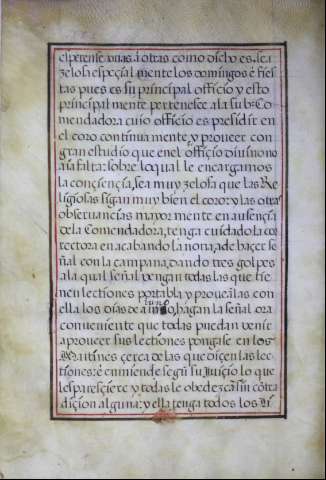 el perense unas á otras como dicho es sea
zelosa espeçial mente los domingos é fies
tas pues es su principal officio y esto
principal mente pertenesce ala sub Co
mendadora cuio officio es presidir en
el coro continua mente, y proueer con
gran estudio que enel officio diuino no
aia falta: sobre lo qual le encargamos
la conçiençia, sea muy zelosa que las Re
ligiosas sigan muy bien el coro: y las otras
obseruancias mayor mente en ausençia
dela Comendadora, tenga cuidado la co
rrectora en acabando la nona, de haçer se
ñal con la campana, dando tres golpes
ala qual señal vengan todas las que tie
nen lectiones por tabla y prouealas con
ella los dias de aiuno, hagan la señal ora
conueniente que todas puedan venir
aproueer sus lectiones pongase en los
Maitines çerca delas que diçen las lec
tiones: é enmiende segũ su Juiçio lo que
les paresçiere y todas le obedezcã sin cõtra
diçion alguna: y ella tenga todos los li